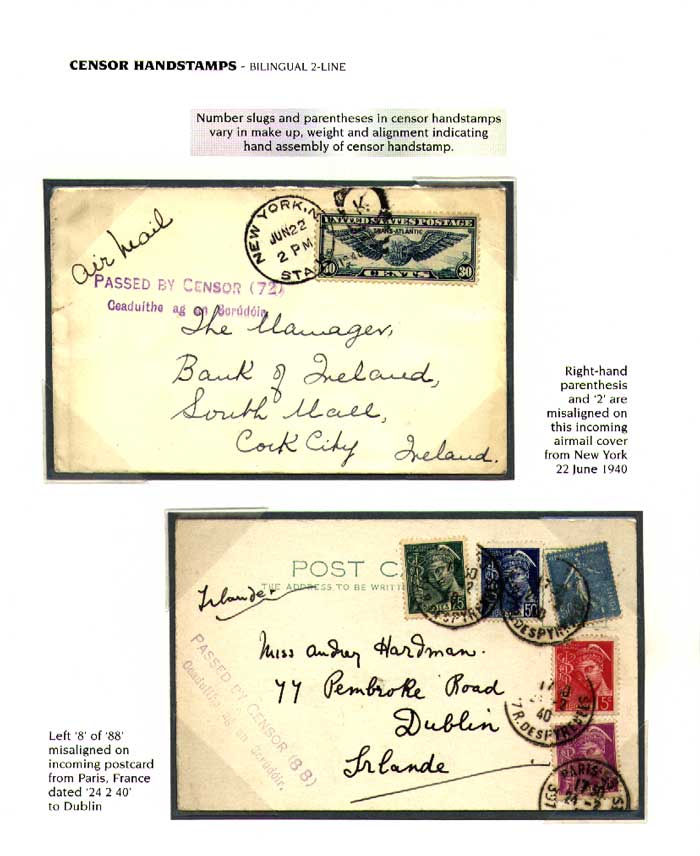 CENSOR HANDSTAMPS - BILINGUAL 2-LINE
Number slugs and parentheses in censor handstamps
vary in make up, weight and alignment indicating
hand assembly of censor handstamp.
Air Mail
NEW YORK, N
JUN 22
2 PM
STA
1940
K
UNITED STATES POSTAGE
TRANS-ATLANTIC
30 CENTS 30
PASSED BY CENSOR (72)
Ceaduithe ag an Scrúdóir
The Manager,
Bank of Ireland,
South Mall,
Cork City Ireland.
Right-hand
parenthesis
and '2' are
misaligned on
this incoming
airmail cover
from New York
22 June 1940
POST C
THE ADDRESS TO BE WRITTE
Irlande
PASSED BY CENSOR (88)
Ceaduithe ag an Scrúdóir.
Miss Audrey Hardman.
77 Pembroke Road
Dublin
Irlande
25
50
R.DESPYRE
R.DESPYRE
5
40
7 R.DESPYRENEES
PARIS-
17 30
24 -2
Left '8' of '88'
misaligned on
incoming postcard
from Paris, France
dated '24 2 40'
to Dublin